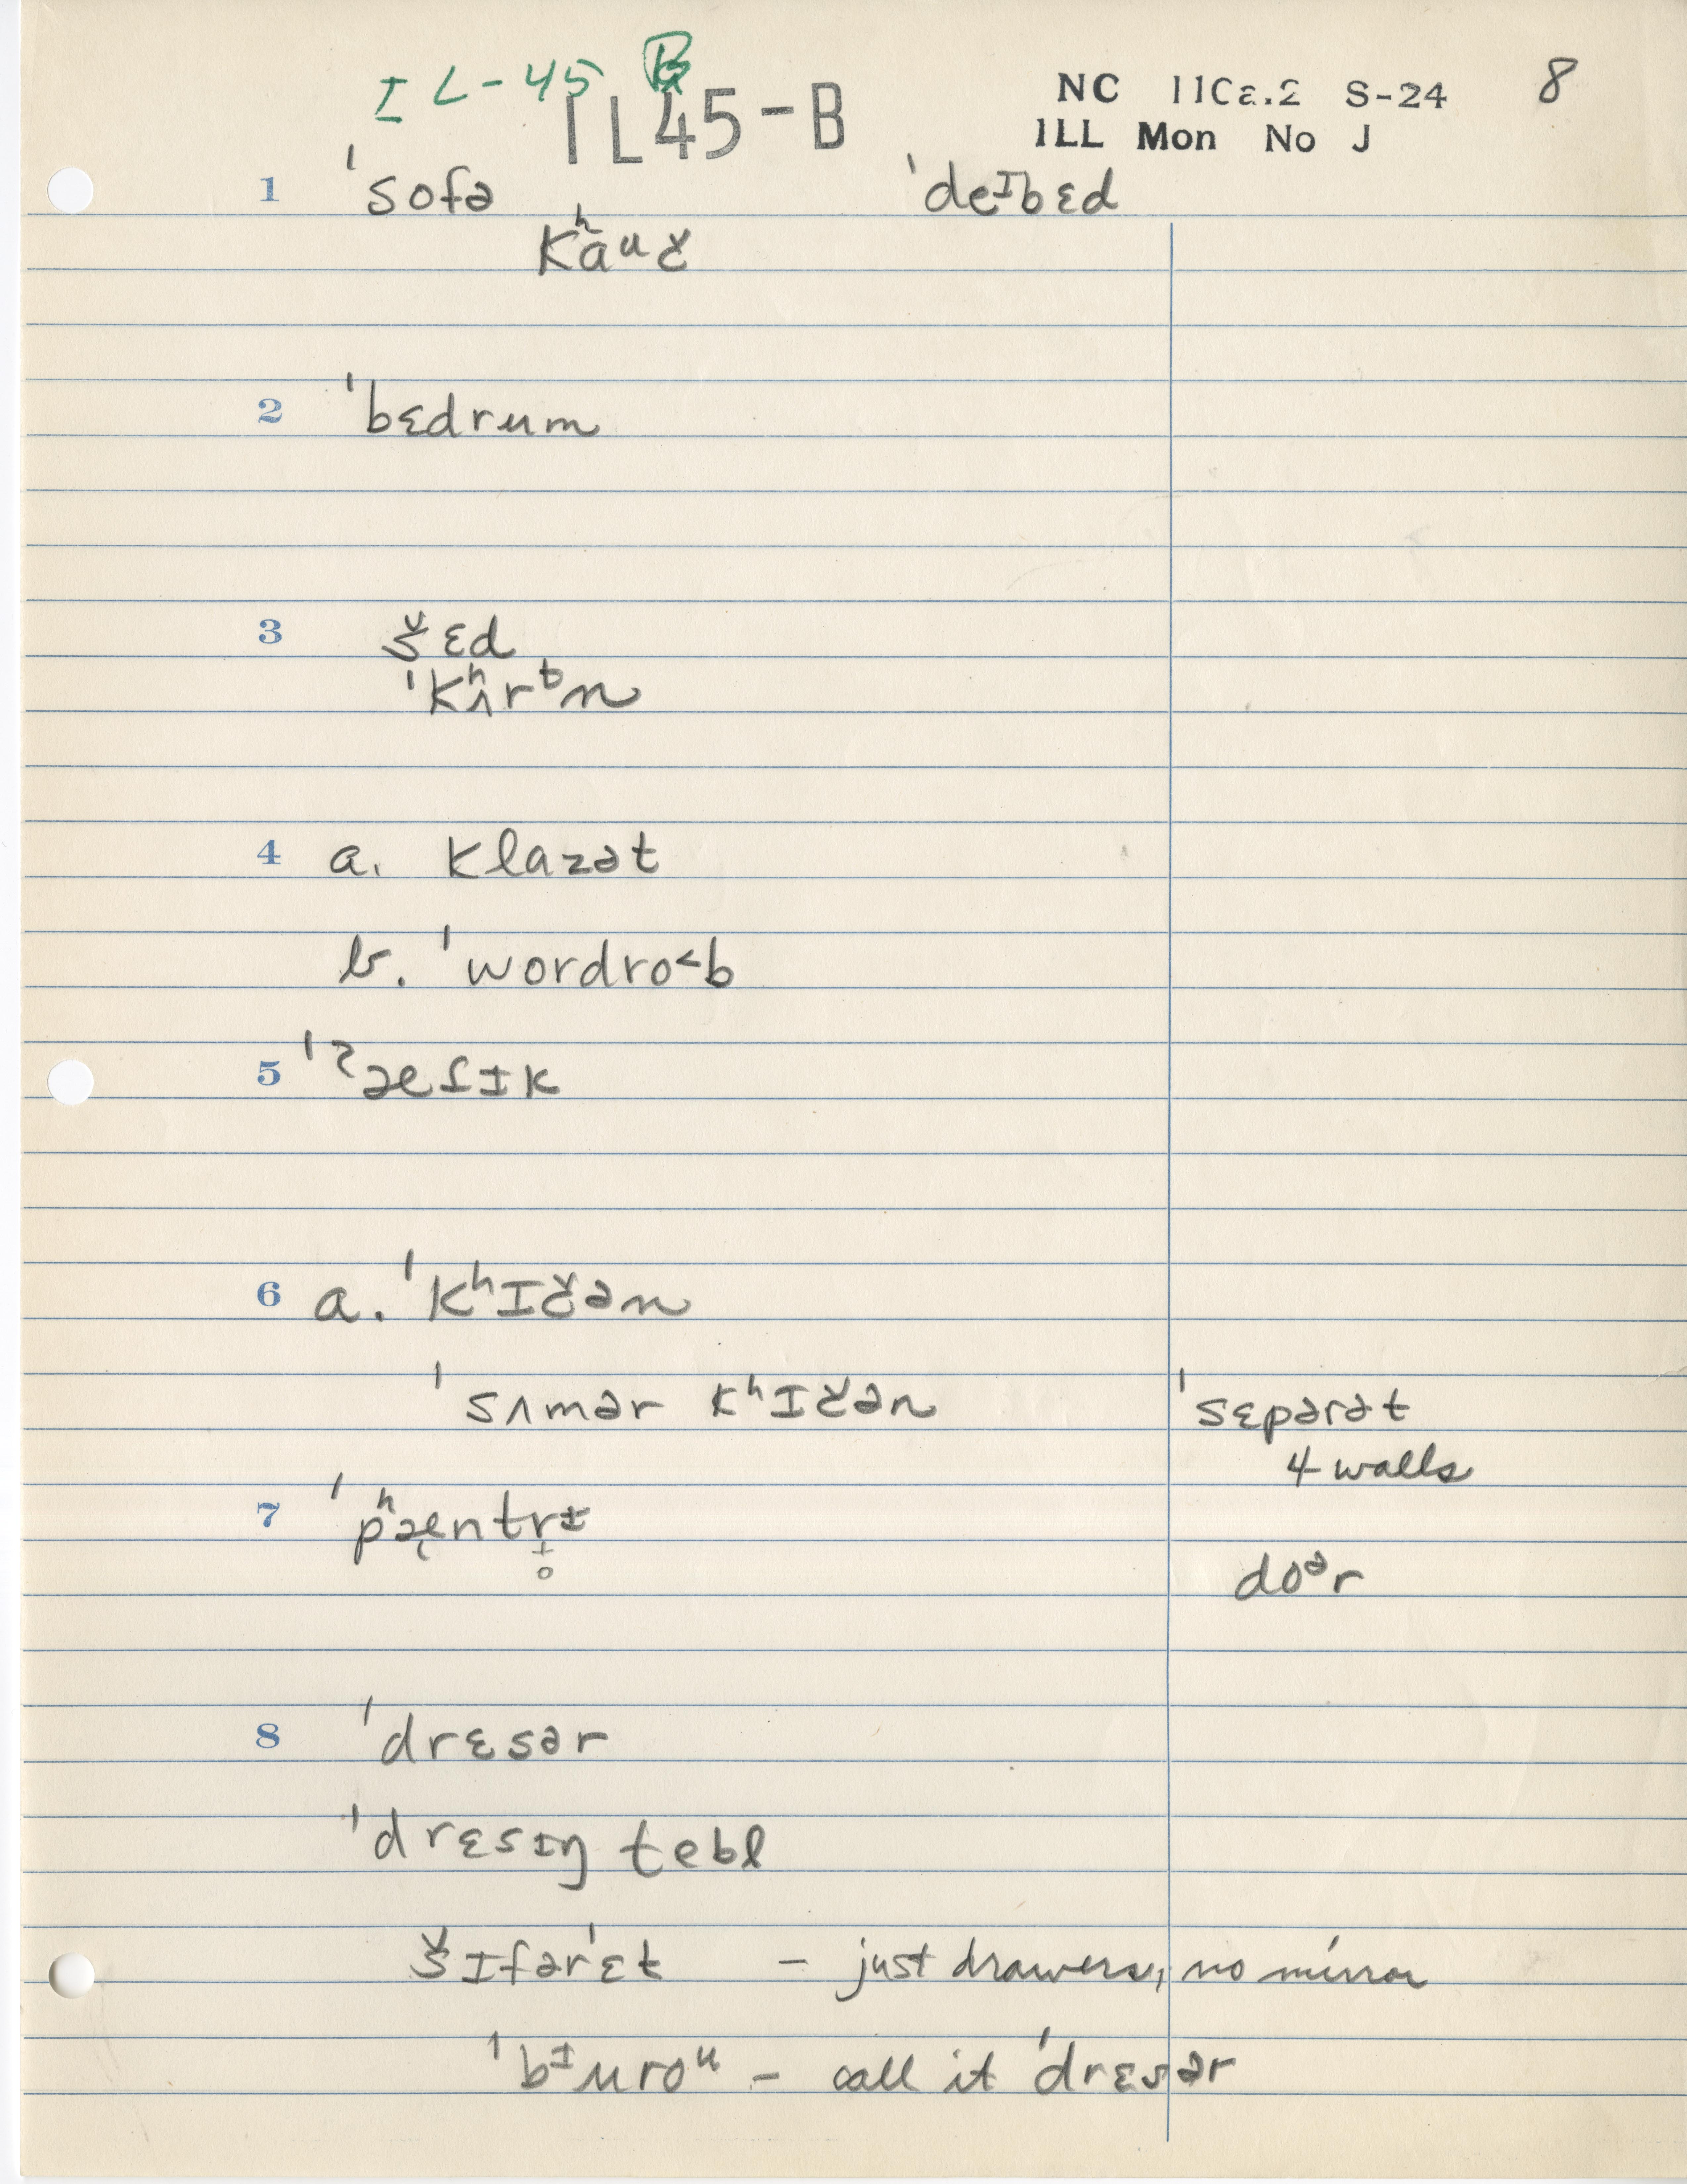 IL-45 B
IL45-B
NC 11Ca.2 S-24
8
ILL Mon No J
1 ˈsofə ˈdeᶦbɛd
kʰaᵘč
2 ˈbɛdrum
3 šɛd
ˈkʰʌrᵗn
4 a. klazət
b. ˈwordro˂b
5 ˈʔæfɪk
6 a. ˈkʰɪčən
ˈsʌmər kʰɪčən ˈsɛpərət
4 walls
7 ˈpʰæntrɨ
doᵊr
8 ˈdrɛsər
ˈdrɛsɪŋ tebl
šɪfərˈɛt – just drawers, no mirror
ˈbᶦuroᵘ – call it ˈdrɛsər